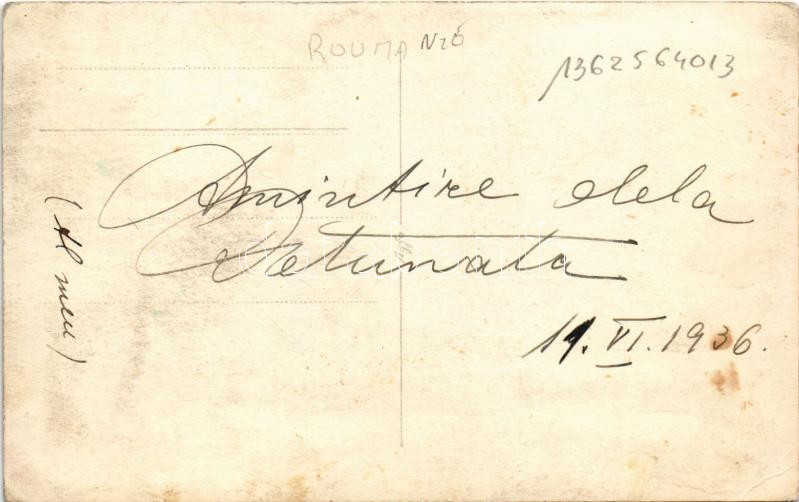 ROUMANIO
1362564013
Amintire dela
Detunata
19.VI.1936.
(Al meu)